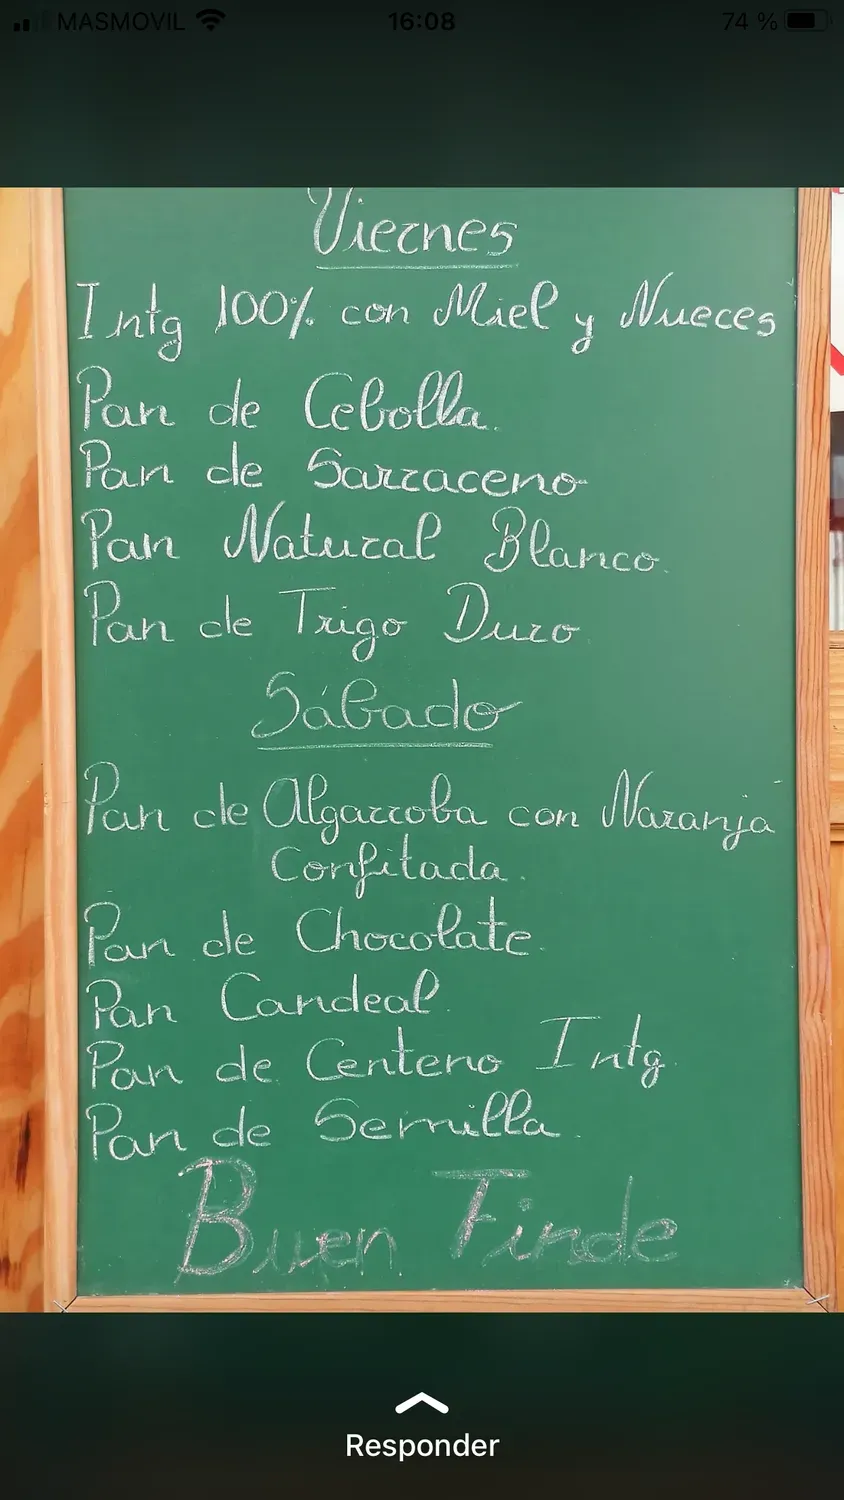 MASMOVIL 16:08 74 %
Viernes
Intg 100% con Miel y Nueces
Pan de Cebolla.
Pan de Sarraceno
Pan Natural Blanco.
Pan de Trigo Duro
Sábado
Pan de Algarroba con Naranja
Confitada.
Pan de Chocolate.
Pan Candeal.
Pan de Centeno Intg.
Pan de Semilla.
Buen Finde
Responder